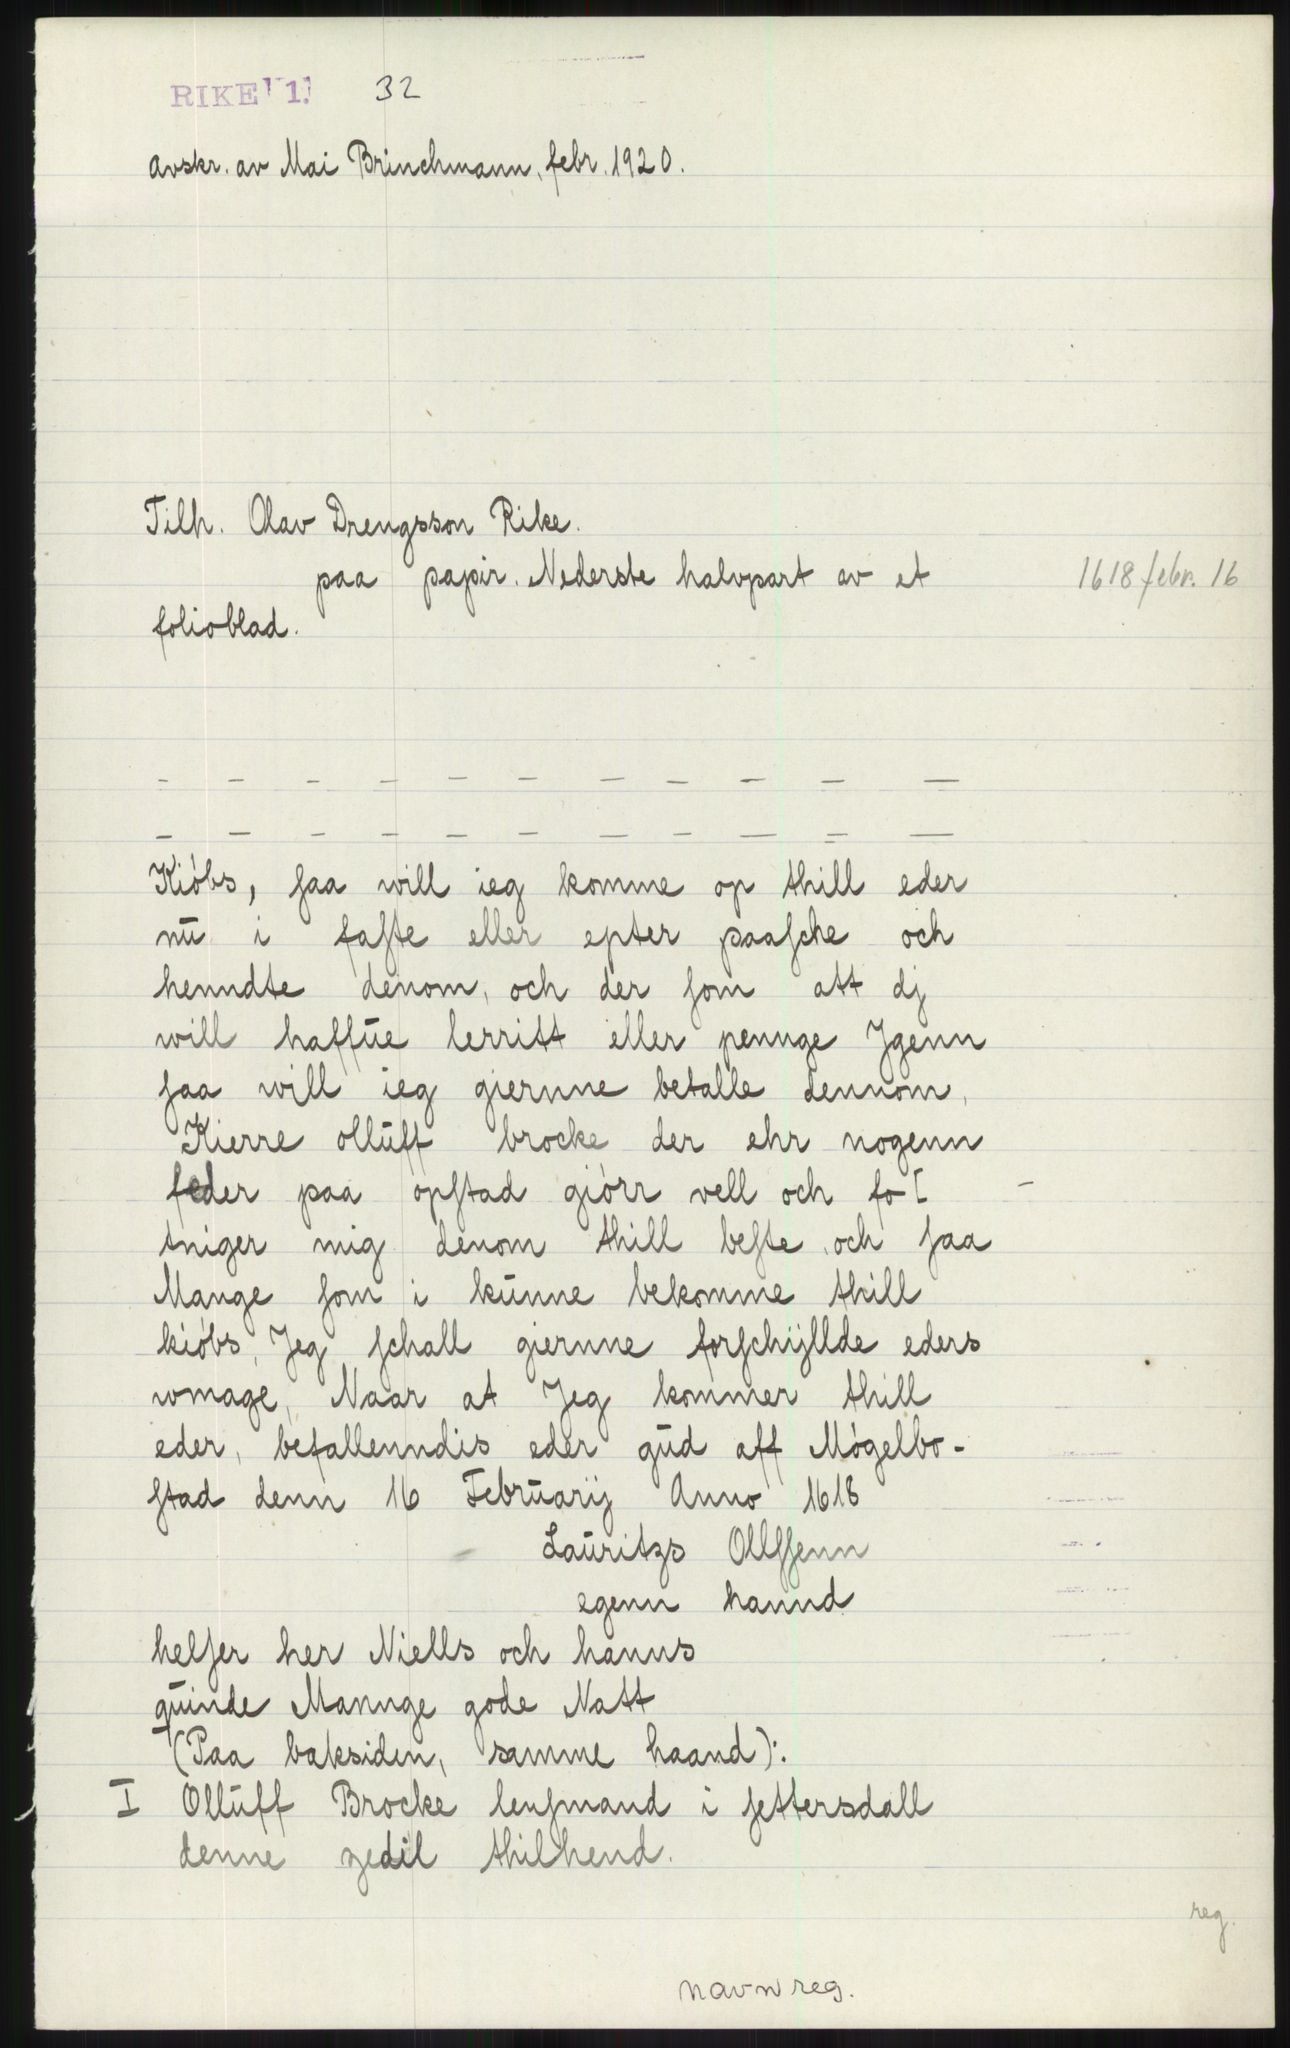 RIKE 1 32
Avskr. av Mai Brinchmann, febr. 1920.
Tilh. Olav Drengsson Rike.
paa papir. Nederste halvpart av et
1618 febr. 16
folioblad.
— — — — — — — — — — —
— — — — — — — — — — —
Kióbs, ſaa will ieg komme op thill eder
nū i faſte eller epter paaſche och
henndte denom, och der ſom att dj
will haffūe lerritt eller pennge Jgenn
ſaa will ieg giernne betalle dennom,
Kierre ollūff brocke der ehr nogenn
feder paa opſtad giórr vell och fo[ —
tniger mig denom thill beſte och ſaa
Mange ſom i kūnne bekomme thill
kióbs, Jeg ſchall giernne forſchÿllde eders
wmage, Naar at Jeg kommer thill
eder, befallenndis eder gūd aff Mógelbo-
ſtad denn 16 Febrūarij Anno 1618
Laūritzs Ollſſenn
egenn hannd
helſer her Niells och hanns
qūinde Mannge gode Natt
(Paa baksiden, samme haand):
I Ollūff Brocke lenſmand i ſettersdall
denne zedil thilhend.
reg.
navnreg.